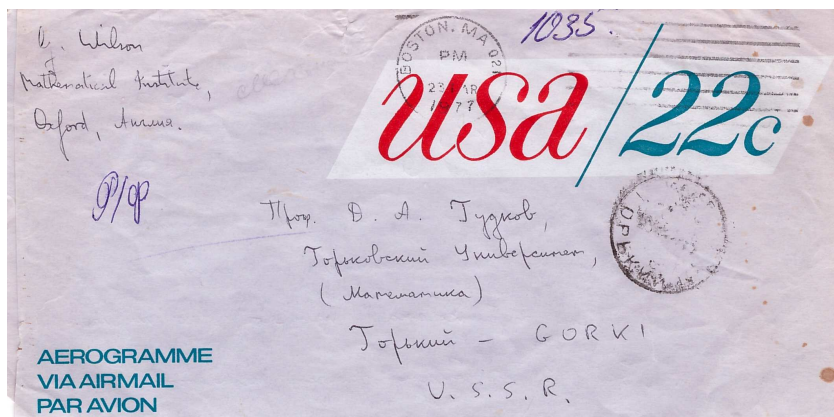 G. Wilson
Mathematical Institute,
Oxford, Англия.
1035.
BOSTON, MA 021
PM
23 MAR
1977
usa/22c
Р/Ф
Проф. Д. А. Гудков,
Горьковский Университет,
(Математика)
Горький - GORKI
U. S. S. R.
AEROGRAMME
VIA AIRMAIL
PAR AVION